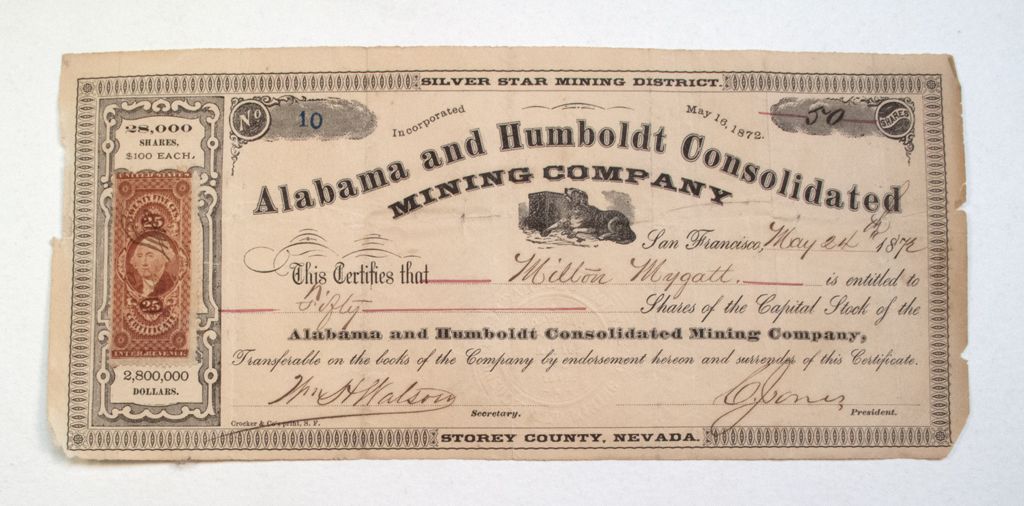 SILVER STAR MINING DISTRICT.
No 10
Incorporated May 16, 1872.
50 SHARES
28,000
SHARES,
$100 EACH,
Alabama and Humboldt Consolidated
MINING COMPANY
San Francisco, May 24th 1872
This Certifies that Milton Mygatt. is entitled to
Fifty Shares of the Capital Stock of the
Alabama and Humboldt Consolidated Mining Company,
Transferable on the books of the Company by endorsement hereon and surrender of this Certificate.
TWENTY FIVE CENTS
25
25
CERTIFICATE
INTER. REVENUE
2,800,000
DOLLARS.
Wm H Watson
Secretary.
Jones
President.
Crocker & Co. print, S. F.
STOREY COUNTY, NEVADA.